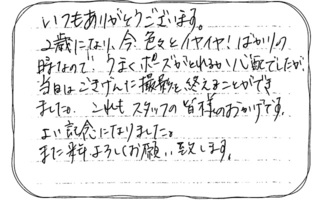 いつもありがとうございます。
2歳になり、今、色々とイヤイヤ!ばかりの
時なので、うまくポーズがとれるか心配でしたが、
当日はごきげんに撮影を終えることができ
ました。これもスタッフの皆様のおかげです。
よい記念になりました。
また来年よろしくお願い致します。